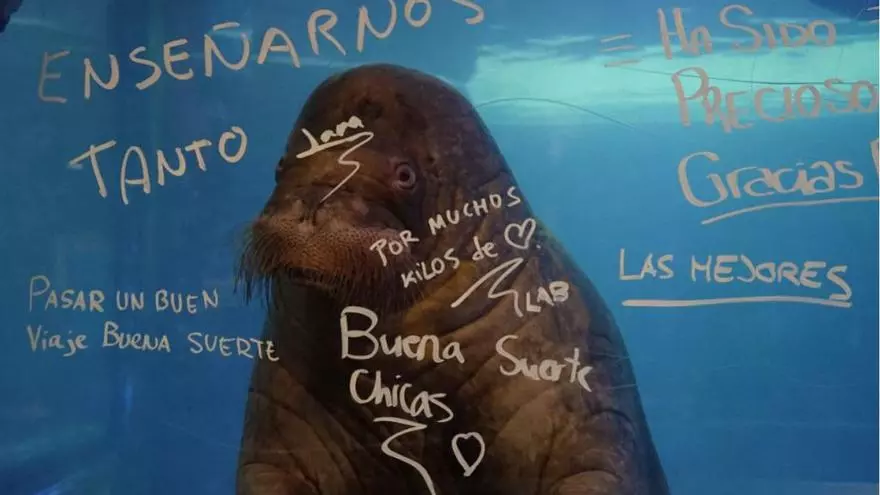 ENSEÑARNOS
TANTO
Ha Sido
PRECIOSO
Gracias
Jara
POR MUCHOS
KILOS de ♡
LAB
LAS MEJORES
PASAR UN BUEN
Viaje BUENA SUERTE
Buena Suerte
Chicas
♡